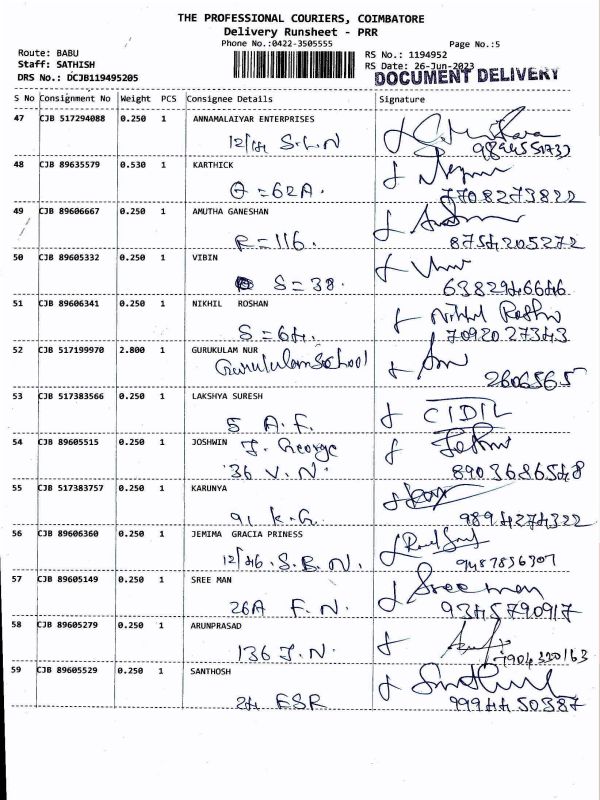 THE PROFESSIONAL COURIERS, COIMBATORE
Delivery Runsheet - PRR
Phone No.:0422-3505555
Page No.:5
Route: BABU
Staff: SATHISH
DRS No.: DCJB119495205
RS No.: 1194952
RS Date: 26-Jun-2023
DOCUMENT DELIVERY
S No Consignment No Weight PCS Consignee Details Signature
47 CJB 517294088 0.250 1 ANNAMALAIYAR ENTERPRISES
12/44 S.L.N
48 CJB 89635579 0.530 1 KARTHICK
Q = 62A.
7708273822
49 CJB 89606667 0.250 1 AMUTHA GANESHAN
R = 116.
8754205272
50 CJB 89605332 0.250 1 VIBIN
S = 38.
6382946646
51 CJB 89606341 0.250 1 NIKHIL ROSHAN
S = 64.
Nikhil Roshn
7092027343
52 CJB 517199970 2.800 1 GURUKULAM NUR
Gurukulam School
2606565
53 CJB 517383566 0.250 1 LAKSHYA SURESH
5 A.F.
CIDIL
54 CJB 89605515 0.250 1 JOSHWIN J. George
36 V.N.
8903686548
55 CJB 517383757 0.250 1 KARUNYA
91 K.G.
9894274322
56 CJB 89606360 0.250 1 JEMIMA GRACIA PRINESS
12/46. S.B.N.
9487836307
57 CJB 89605149 0.250 1 SREE MAN
26A F.N.
Sree man
9345790917
58 CJB 89605279 0.250 1 ARUNPRASAD
136 J.N.
7904320163
59 CJB 89605529 0.250 1 SANTHOSH
24 ESR
9994450387